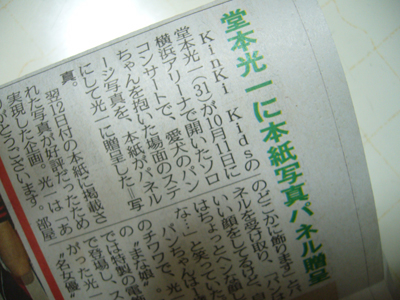 堂本光一に本紙写真パネル贈呈
KinKi Kidsの
堂本光一(31)が10月11日に
横浜アリーナで開いたソロ
コンサートで、愛犬のパン
ちゃんを抱いた場面のステ
ージ写真を、本紙がパネル
にして光一に贈呈した=写
真。
翌12日付の本紙に掲載さ
れた写真が好評だったため
実現した企画。光一は「あ
りがとうございます。部屋
のどこかに飾ります」
ネルを受け取り、「パン
いい顔をしてるけど、
はちょっとへんな顔
な…」と笑っていた
パンちゃんは
のチワワで、
の“まな娘”
では特製の電
で登場し、
がった光一
“名女優”